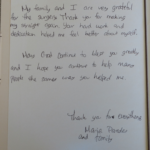 My family and I are very grateful
for the surgery. Thank you for making
my again. Your hard work and
dedication helped me feel better about myself.
May God continue to bless you greatly
and I hope you continue to help many
people the same way you helped me.
Thank you for everything
and family